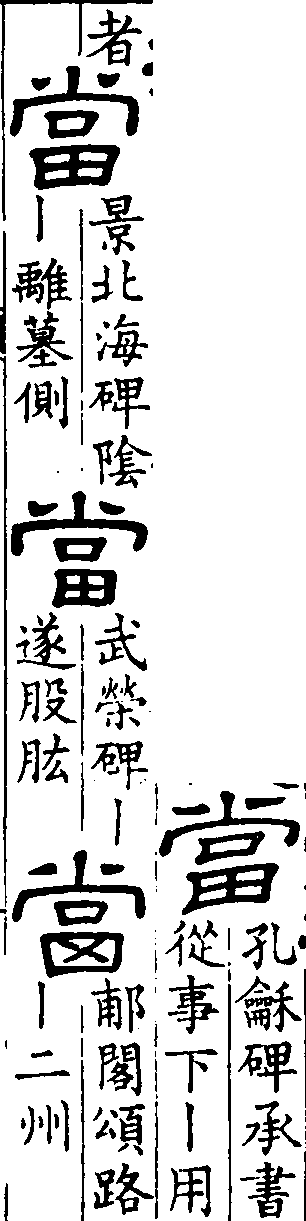 當
孔龢碑承書
從事下丨用
者
當
景北海碑陰
丨離墓側
當
武榮碑丨
遂股肱
當
郙閣頌路
丨二州